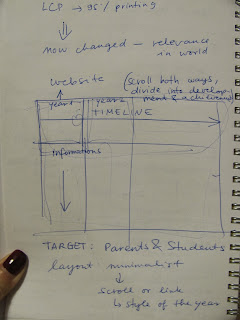 LCP → 95% printing
⇓
Now changed – relevance
in world
website
(scroll both ways,
divide into develop
ment & achievem
years
years
TIMELINE
Informations
TARGET: Parents & Students
layout: minimalist
↓
scroll or link
↳ style of the year